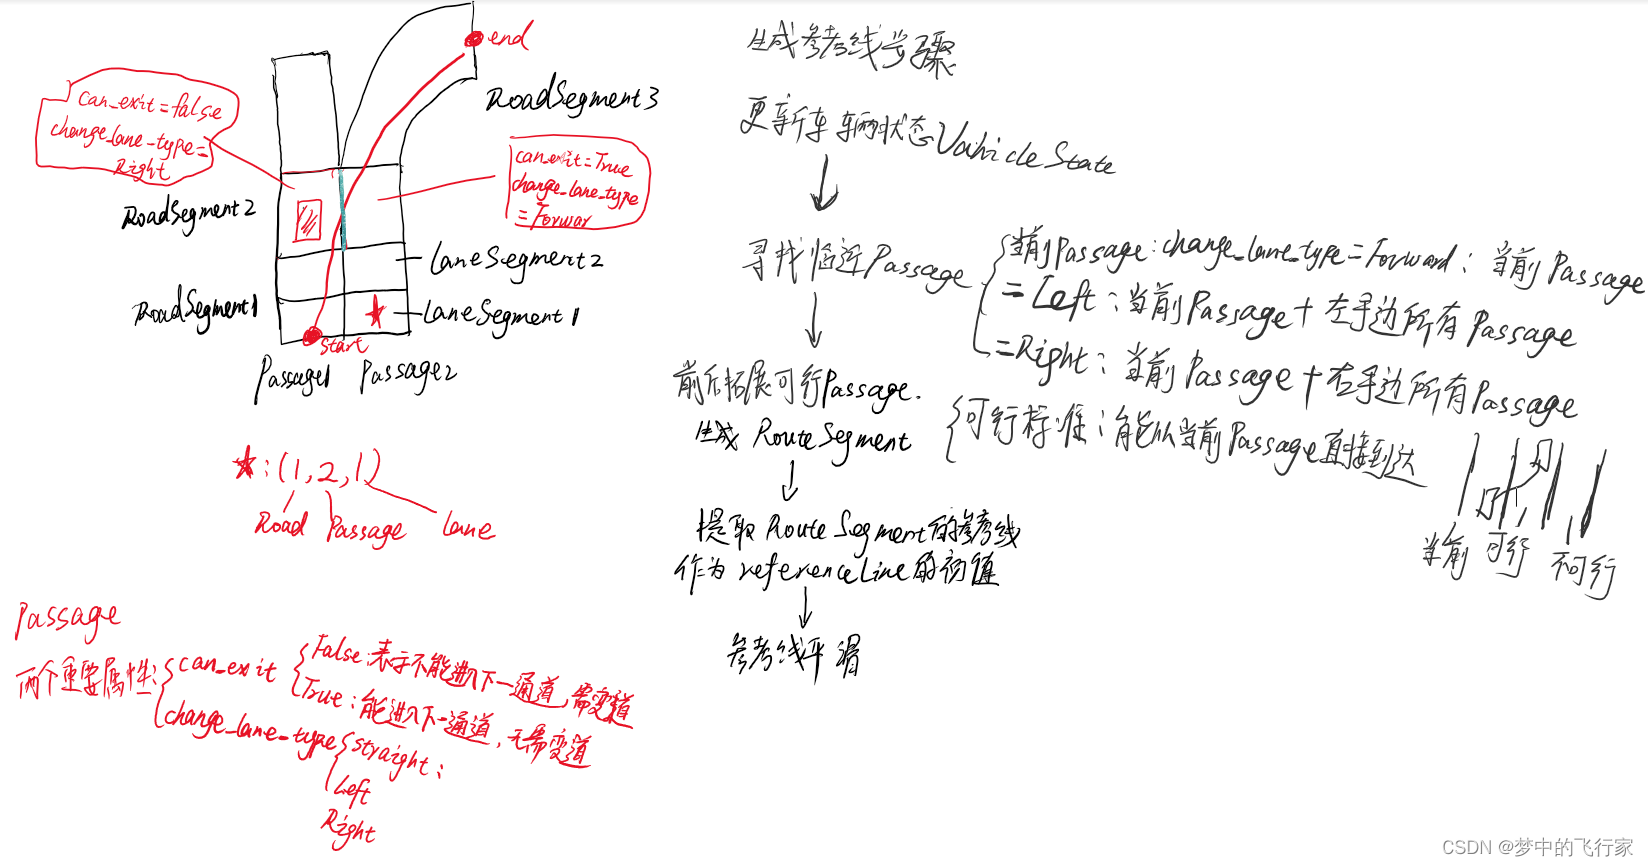 end
RoadSegment3
can_exit=false
change_lane-type=
Right
can_exit=True
change_lane_type
=Forwar
RoadSegment2
LaneSegment2
RoadSegment1
LaneSegment1
start
Passage1 Passage2
★:(1,2,1)
Road Passage Lane
Passage
两个重要属性:
can_exit
False:表示不能进入下一通道,需变道
True:能进入下一通道,无需变道
change_lane-type
straight:
Left
Right
生成参考线步骤
更新车辆状态VahicleState
寻找临近Passage
当前Passage:change_lane_type=Forward:当前Passage
=Left:当前Passage+左手边所有Passage
=Right:当前Passage+右手边所有Passage
前后拓展可行Passage.
生成 RouteSegment
可行标准:能从当前Passage直接到达
当前 可行 不可行
提取RouteSegment的参考线
作为referenceLine的初值
参考线平滑
CSDN @梦中的飞行家